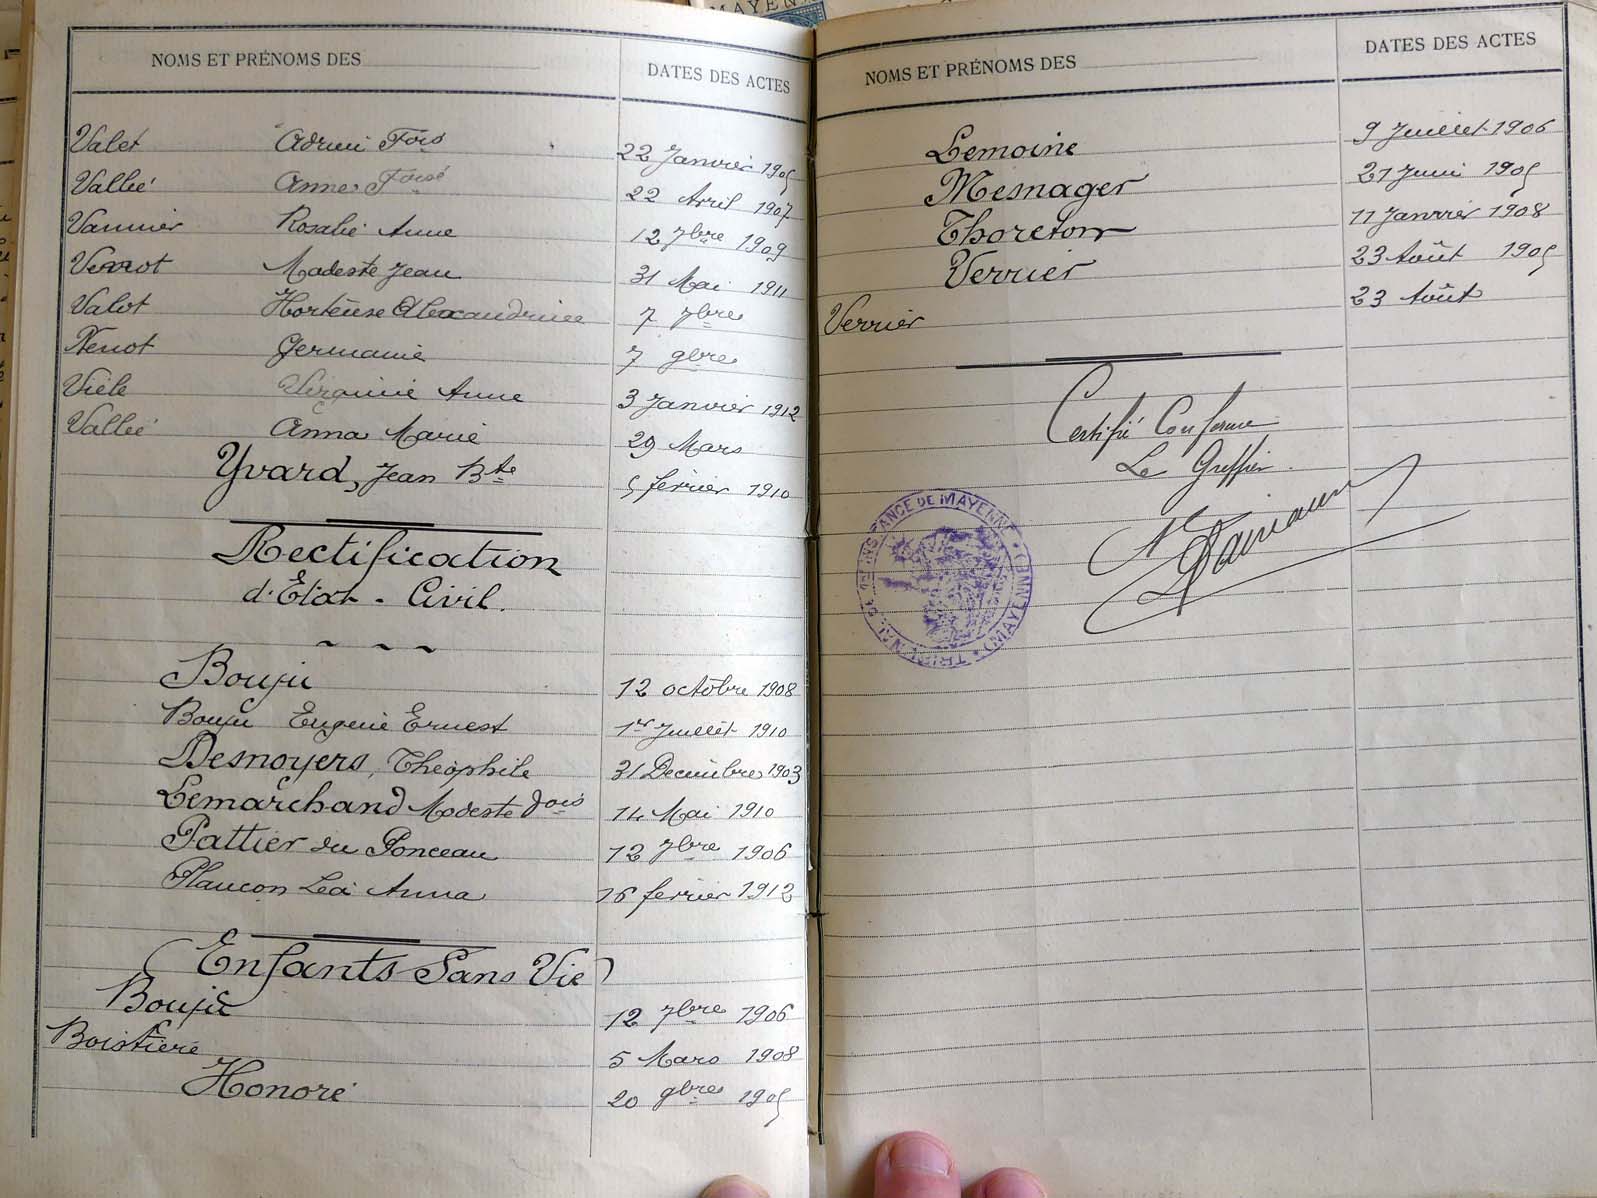 MAYEN
NOMS ET PRÉNOMS DES
DATES DES ACTES
Valet Adrien Fois 22 Janvier 1905
Vallée Anne Foise 22 Avril 1907
Vannier Rosalie Anne 12 7bre 1909
Verrot Modeste Jean 31 Mai 1911
Valot Hortense Alexandrine 7 7bre
Nenot Germaine 7 9bre
Vièle Virginie Anne 3 Janvier 1912
Vallée Anna Marie 29 Mars
Yvard, Jean Bte 5 février 1910
Rectification
d'Etat-Civil.
Bouju 12 octobre 1908
Bouju Eugene Ernest 1er Juillet 1910
Desnoyers, Théophile 31 Decembre 1903
Lemarchand Modeste Jois 14 Mai 1910
Pattier du Ponceau 12 7bre 1906
Plançon Léa Anna 16 fevrier 1912
Enfants Sans Vie
Bouju 12 7bre 1906
Boistiere 5 Mars 1908
Honoré 20 9bre 1905
NOMS ET PRÉNOMS DES
DATES DES ACTES
Lemoine 9 Juillet 1906
Mesnager 21 Juin 1905
Thoreton 11 Janvier 1908
Verrier 23 Août 1905
Verrier 23 Août
Certifié Conforme
Le Greffier
TRIBUNAL DE 1ERE INSTANCE DE MAYENNE (MAYENNE)